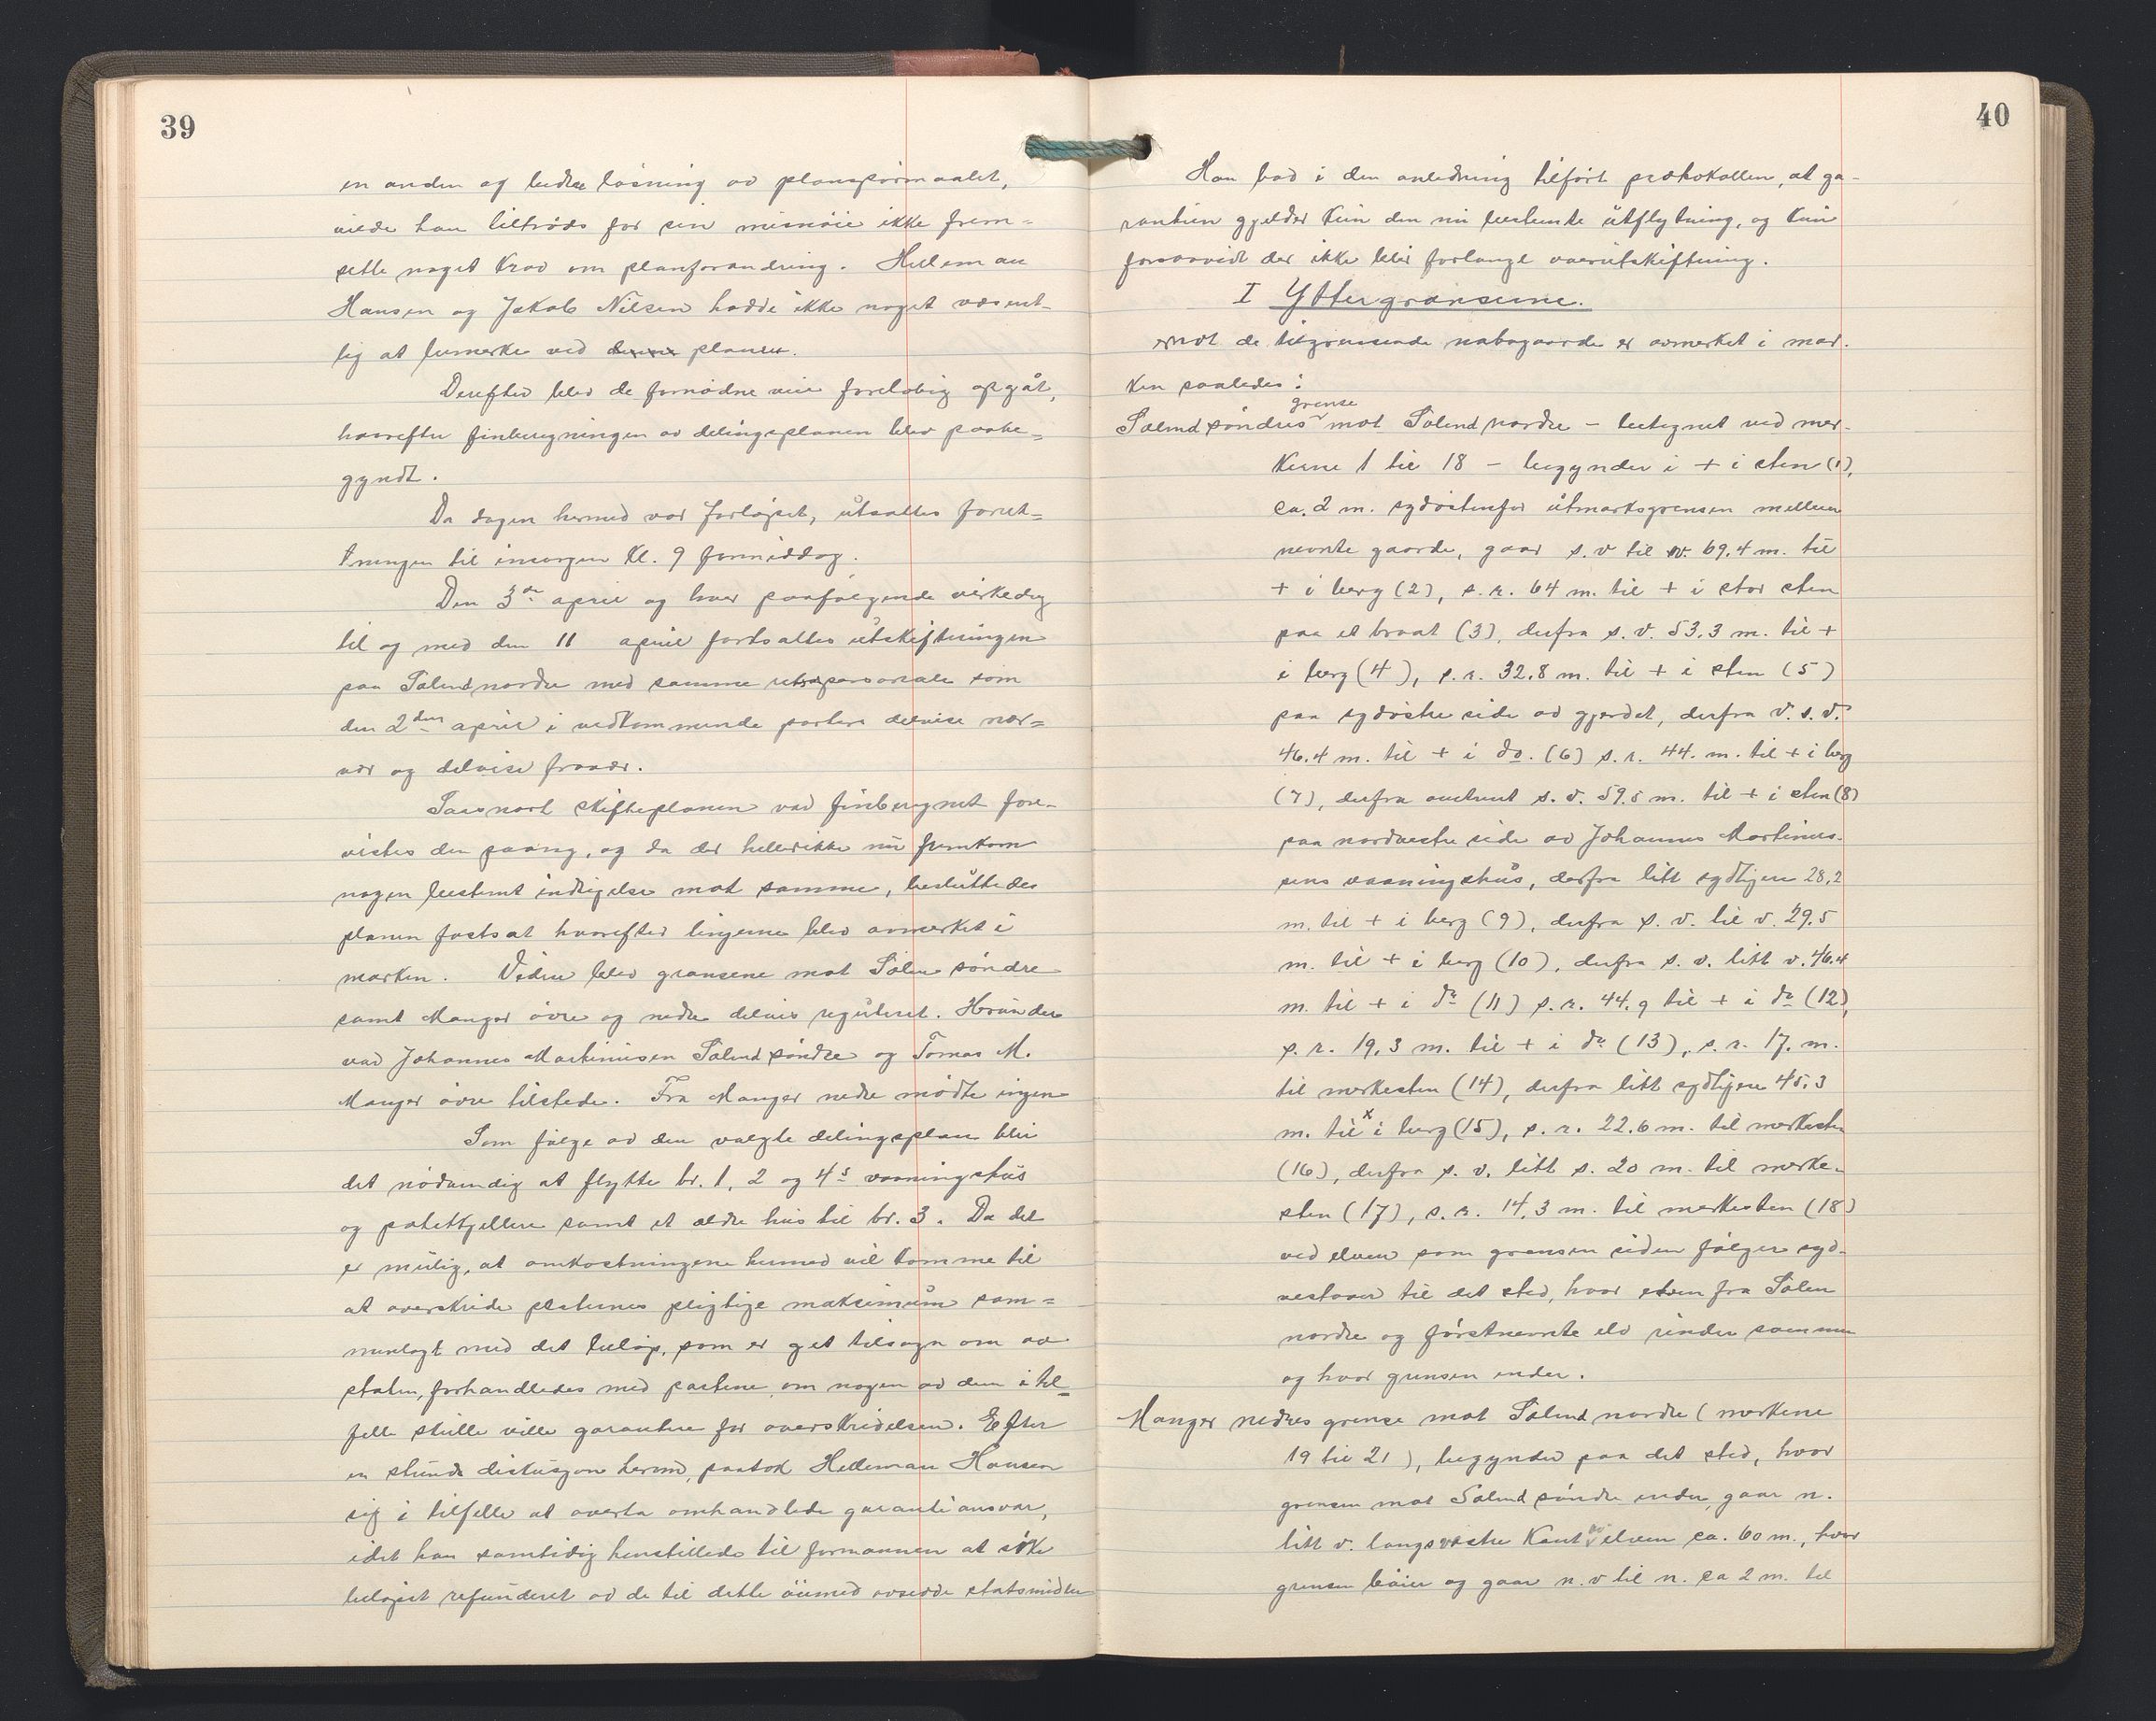 39
en anden og bedre løsning av planspørmaalet,
vilde han tiltrods for sin misnøie ikke frem=
sette noget krav om planforandring. Helleman
Hansen og Jakob Nilsen hadde ikke noget væsent-
lig at bemerke ved denne planen.
Derefter blev de fornødne veie foreløbig opgåt,
hvorefter finberegningen av delingsplanen blev paabe=
gyndt.
Da dagen hermed var forløpet, utsattes forret=
tningen til imorgen kl. 9 formiddag.
Den 3de april og hver paafølgende virkedag
til og med den 11 april fortsattes utskiftningen
paa Sølendnordre med samme retspersonale som
den 2den april i vedkommende parters delvise nær=
vær og delvise fravær.
Saasnart skifteplanen var finberegnet fore-
vistes den paany, og da der hellerikke nu fremkom
nogen bestemt indsigelse mot samme, besluttedes
planen fastsat hvorefter linjerne blev avmerket i
marken. Videre blev grænsene mot Sølen søndre
samt Manger øvre og nedre delvis reguleret. Herunder
var Johannes Martinusen Sølend søndre og Tomas M.
Manger øvre tilstede. Fra Manger nedre mødte ingen
Som følge av den valgte delingsplan blir
det nødvendig at flytte br. 1, 2 og 4s vaaningshus
og potetkjellere samt et ældre hus til br. 3. Da det
er mulig, at omkostningene hermed vil komme til
at overskride parternes pligtige maksimum sam=
menlagt med det beløp, som er get tilsagn om av
staten, forhandledes med partene om nogen av dem i til=
felle skulle ville garantere for overskridelsen. Efter
en stunds diskusjon herom, paatok Helleman Hansen
sig i tilfelle at overta omhandlede garantiansvar,
idet han samtidig henstillede til formannen at søke
beløpet refunderet av de til dette øiemed avsedde statsmidler
40
Han bad i den anledning tilført protokollen, at ga-
rantien gjelder kun den nu bestemte utflytning, og kun
forsaavidt der ikke blir forlangt overutskiftning.
I Yttergrænserne.
mot de tilgrænsende nabogaarde er avmerket i mar-
ken saaledes:
Sølend søndres grense mot Sølend nordre – betegnet ved mer-
kerne 1 til 18 – begynder i + i sten (1),
ca. 2 m. sydøstenfor utmarksgrensen mellem
nevnte gaarde, gaar s.v til sv. 69.4 m. til
+ i berg (2), s.r. 64 m. til + i stor sten
paa et braat (3), derfra s.v. 53.3 m. til +
i berg (4), s.r. 32.8 m. til + i sten (5)
paa sydøstre side av gjerdet, derfra v.s.v.
46.4 m. til + i do. (6) s.r. 44. m. til + i berg
(7), derfra omtrent s.v. 59.5 m. til + i sten (8)
paa nordvestre side av Johannes Martinus-
sens vaaningshus, derfra litt sydligere 28,2
m. til + i berg (9), derfra s.v. til v. 29.5
m. til + i berg (10), derfra s.v. litt v. 46.4
m. til + i do (11) s.r. 44.9 til + i do (12),
s.r. 19.3 m. til + i do (13), s.r. 17. m.
til merkesten (14), derfra litt sydligere 45.3
m. til x i berg (15), s.r. 22.6 m. til merkesten
(16), derfra s.v. litt s. 20 m. til merke-
sten (17), s.r. 14.3 m. til merkesten (18)
ved elven som grensen siden følger syd-
vestover til det sted, hvor elven fra Sølen
nordre og førstnevnte elv rinder sammen
og hvor grensen ender.
Manger nedres grense mot Sølend nordre (merkene
19 til 21), begynder paa det sted, hvor
grensen mot Sølend søndre ender, gaar n.
litt v. langs vestre kant av elven ca. 60 m., hvor
grensen bøier og gaar n.v til n. ca 2 m. til